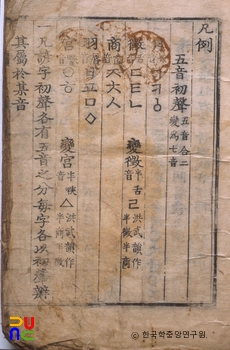 凡例
五音初聲 五音合二變爲七音
角 ㄱㅋㆁ
徵 ㄷㅌㄴ 變徵 半舌音 ㄹ 洪武韻作半徵半商
商 ㅈㅊㅅ
羽 ㅂㅍㅁㅇ
宮 ㆆㅎ 變宮 半喉音 ㅿ 洪武韻作半商半徵
一 凡諺字初聲各有五音之分每字各以初聲辨
其屬於某音
한국학중앙연구원